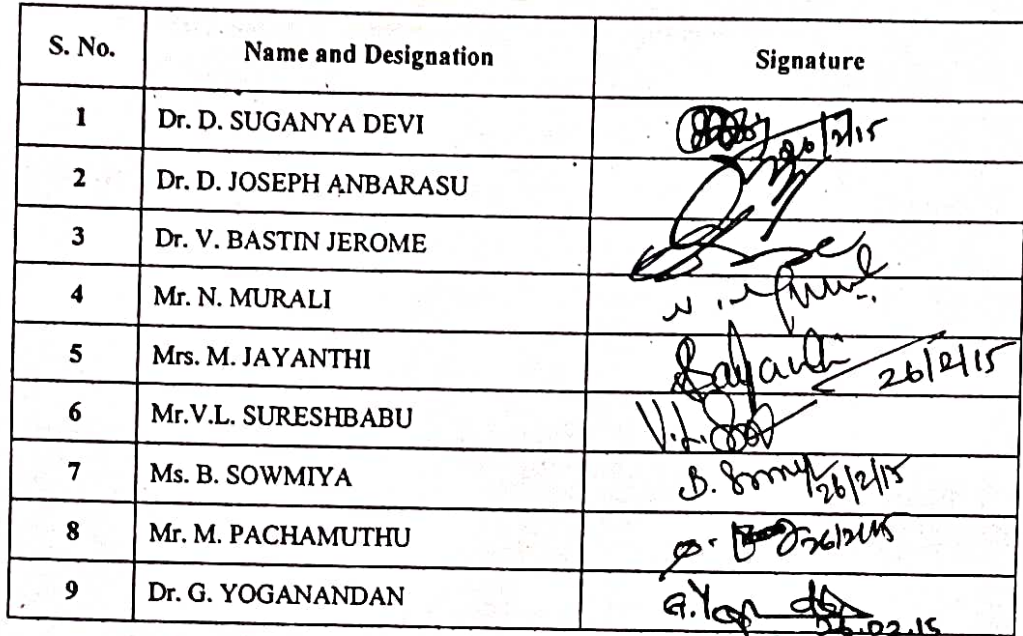 S. No. Name and Designation Signature
1 Dr. D. SUGANYA DEVI 26/2/15
2 Dr. D. JOSEPH ANBARASU
3 Dr. V. BASTIN JEROME
4 Mr. N. MURALI
5 Mrs. M. JAYANTHI Jayanthi 26/2/15
6 Mr.V.L. SURESHBABU V.L.
7 Ms. B. SOWMIYA B. 26/2/15
8 Mr. M. PACHAMUTHU 26/2/15
9 Dr. G. YOGANANDAN G. 26.02.15